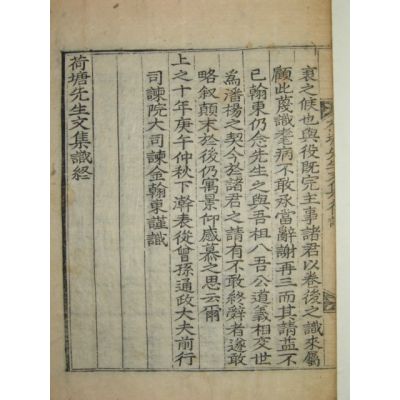 裒之候也與役旣完主事諸君以卷後之識來屬
顧此蔑識老病不敢承當辭謝再三而其請益不
已翰東仍念先生之與吾祖八吾公道義相交世
為潘楊之契今於諸君之請有不敢終辭者遂敢
略叙顚末於後仍寓景仰感慕之思云爾
上之十年庚午仲秋下澣表從曾孫通政大夫前行
司諫院大司諫金翰東謹識
荷塘先生文集識終